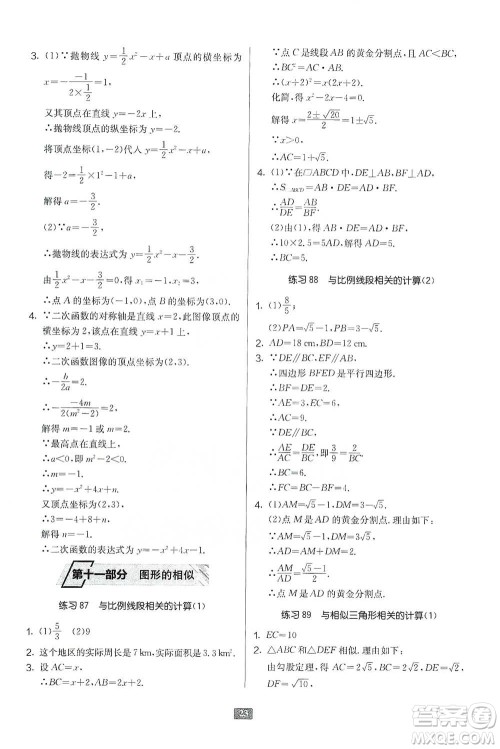 3. (1)∵抛物线 y=1/2x²-x+a 顶点的横坐标为
x=-(-1)/(2×1/2)=1,
又其顶点在直线 y=-2x 上,
∴抛物线顶点的纵坐标为 y=-2.
将顶点坐标(1,-2)代入 y=1/2x²-x+a,
得-2=1/2×1²-1+a,
解得 a=-3/2.
(2)∵a=-3/2,
∴抛物线的表达式为 y=1/2x²-x-3/2.
令 y=0,得 x₁=-1,x₂=3,
∴点 A 的坐标为(-1,0),点 B 的坐标为(3,0).
4. ∵二次函数的对称轴是直线 x=2,此图像顶点的
横坐标为 2,该点在直线 y=1/2x+2 上,
∴y=1/2×2+2=3,
∴二次函数图像的顶点坐标为(2,3).
∴-b/2a=2.
∴-(-4m)/(2(m²-2))=2,
解得 m=-1 或 m=2.
∵最高点在直线上,
∴a<0,
∴m=-1,
∴y=-x²+4x+n.
又顶点坐标为(2,3),
∴3=-4+8+n,
解得 n=-1.
∴二次函数的表达式为 y=-x²+4x-1.
第十一部分 图形的相似
练习 87 与比例线段相关的计算(1)
1. (1)5/3 (2)9
2. 这个地区的实际周长是 7 km,实际面积是 3.3 km².
3. 设 AC=x,
∴AB=x+2,
∵点 C 是线段 AB 的黄金分割点.
∴BC²=AC·AB,
∴(x+2)²=x(x+2),
化简,得 x²-2x-4=0.
解得 x=(2±√20)/2=1±√5.
∵x>0,
∴AC=1+√5.
4. (1)∵在▱ABCD 中,DE⊥AB,DF⊥BC,
∴S▱ABCD=AB·DE=BC·DF.
∴AB/DE=BC/DF.
(2)由(1)知 AB·DE=BC·DF,
∴10×2.5=5BC,
∴BC=5.
练习 88 与比例线段相关的计算(2)
1. (1)8/5
(2)PA=√5-1,PB=3-√5.
2. AD=18 cm,BD=12 cm.
3. ∵DE∥BC,DF∥AC,
∴四边形 BFED 是平行四边形.
∴BF=DE=2.
∵AE=3,
∴AC=AE+EC=3+6=9.
∵DE∥BC,
∴AE/AC=DE/BC,即3/9=2/BC,
解得 BC=6.
4. (1)AM=√5-1,DM=3-√5.
(2)点 M 是 AD 的黄金分割点.理由如下:
∵AM=√5-1,AD=2,
∴AM/AD=(√5-1)/2.
∴点 M 是 AD 的黄金分割点.
练习 89 与相似三角形相关的计算(1)
1. EC=10
2. △ABC 和△DEF 相似.理由如下:
由勾股定理,得 AB=2√5,AC=√5,BC=5,
DF=√10,
23